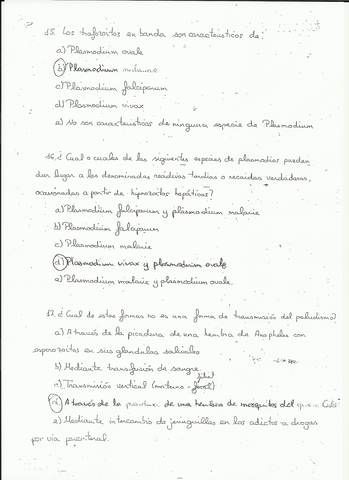 15. Los trofozoitos en banda son característicos de:
a) Plasmodium ovale
b) Plasmodium malariae
c) Plasmodium falciparum
d) Plasmodium vivax
e) No son característicos de ninguna especie de Plasmodium
16. ¿Cual o cuales de las siguientes especies de plasmodios pueden
dar lugar a las denominadas recidivas tardías o recaídas verdaderas,
ocasionadas a partir de hipnozoitos hepáticos?
a) Plasmodium falciparum y plasmodium malarie
b) Plasmodium falciparum
c) Plasmodium malarie
d) Plasmodium vivax y plasmodium ovale
e) Plasmodium malarie y plasmodium ovale.
17. ¿Cual de estas formas no es una forma de transmisión del paludismo?
a) A través de la picadura de una hembra de Anopheles con
esporozoitos en sus glándulas salivales
b) Mediante transfusión de sangre.
c) Transmisión vertical (materno-fetal)
d) A través de la picadura de una hembra de mosquitos del
e) Mediante intercambio de jeringuillas en los adictos a drogas
por vía parenteral.